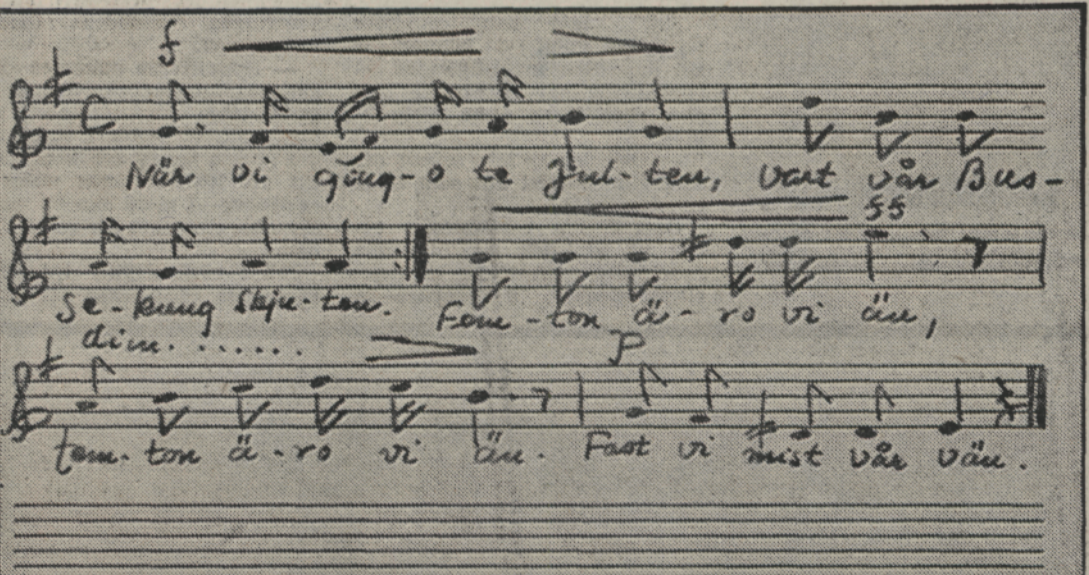 f
När vi gingo te Jul-ten, vart vår Bus-
ff
Se-kung skju-ten. Fem-ton ä-ro vi än,
dim. . . . . . .
p
fem-ton ä-ro vi än. Fast vi mist vår vän.